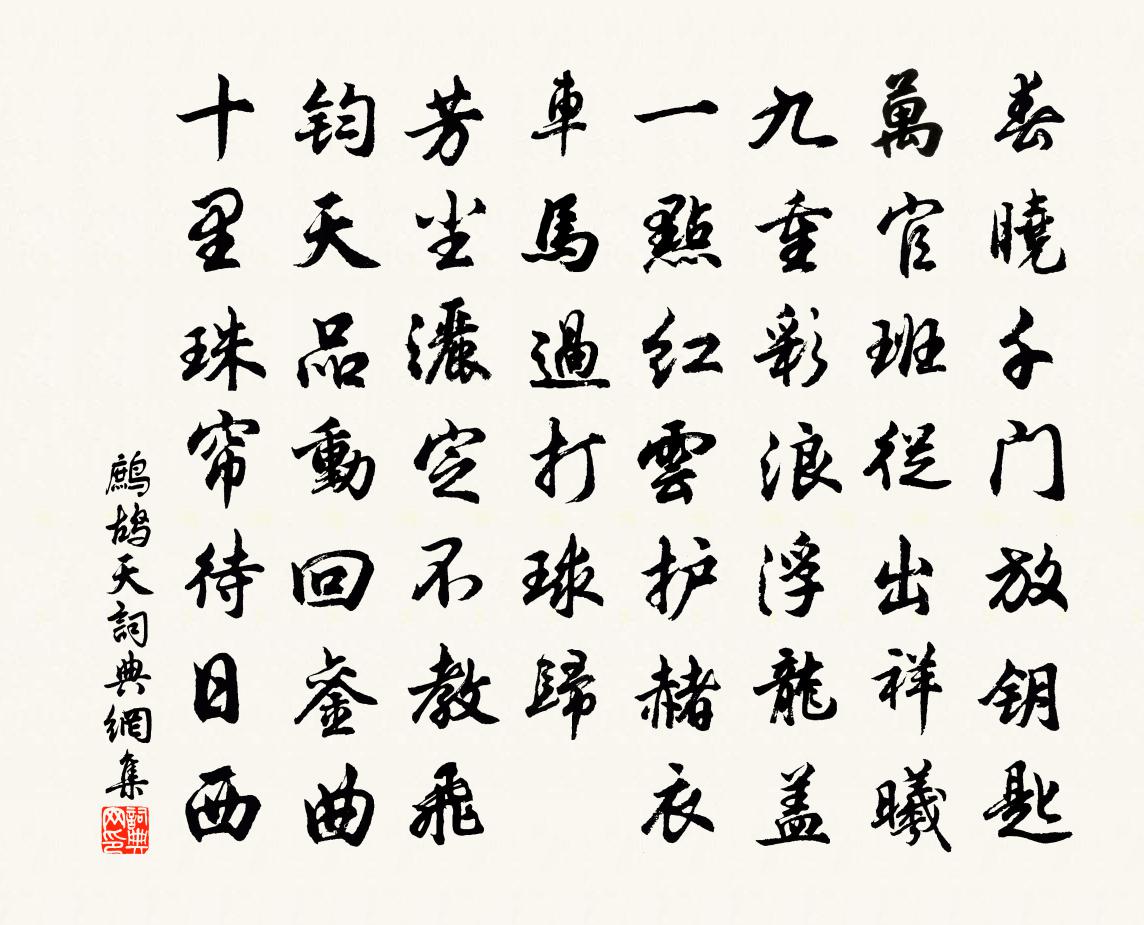 春曉千门放钥匙
萬官班從出祥曦
九重彩浪浮龍盖
一點红雲护赭衣
車馬過打球歸
芳尘灑定不教飛
钧天品動回銮曲
十里珠帘待日西
鷓鴣天詞典網集
詞典网印